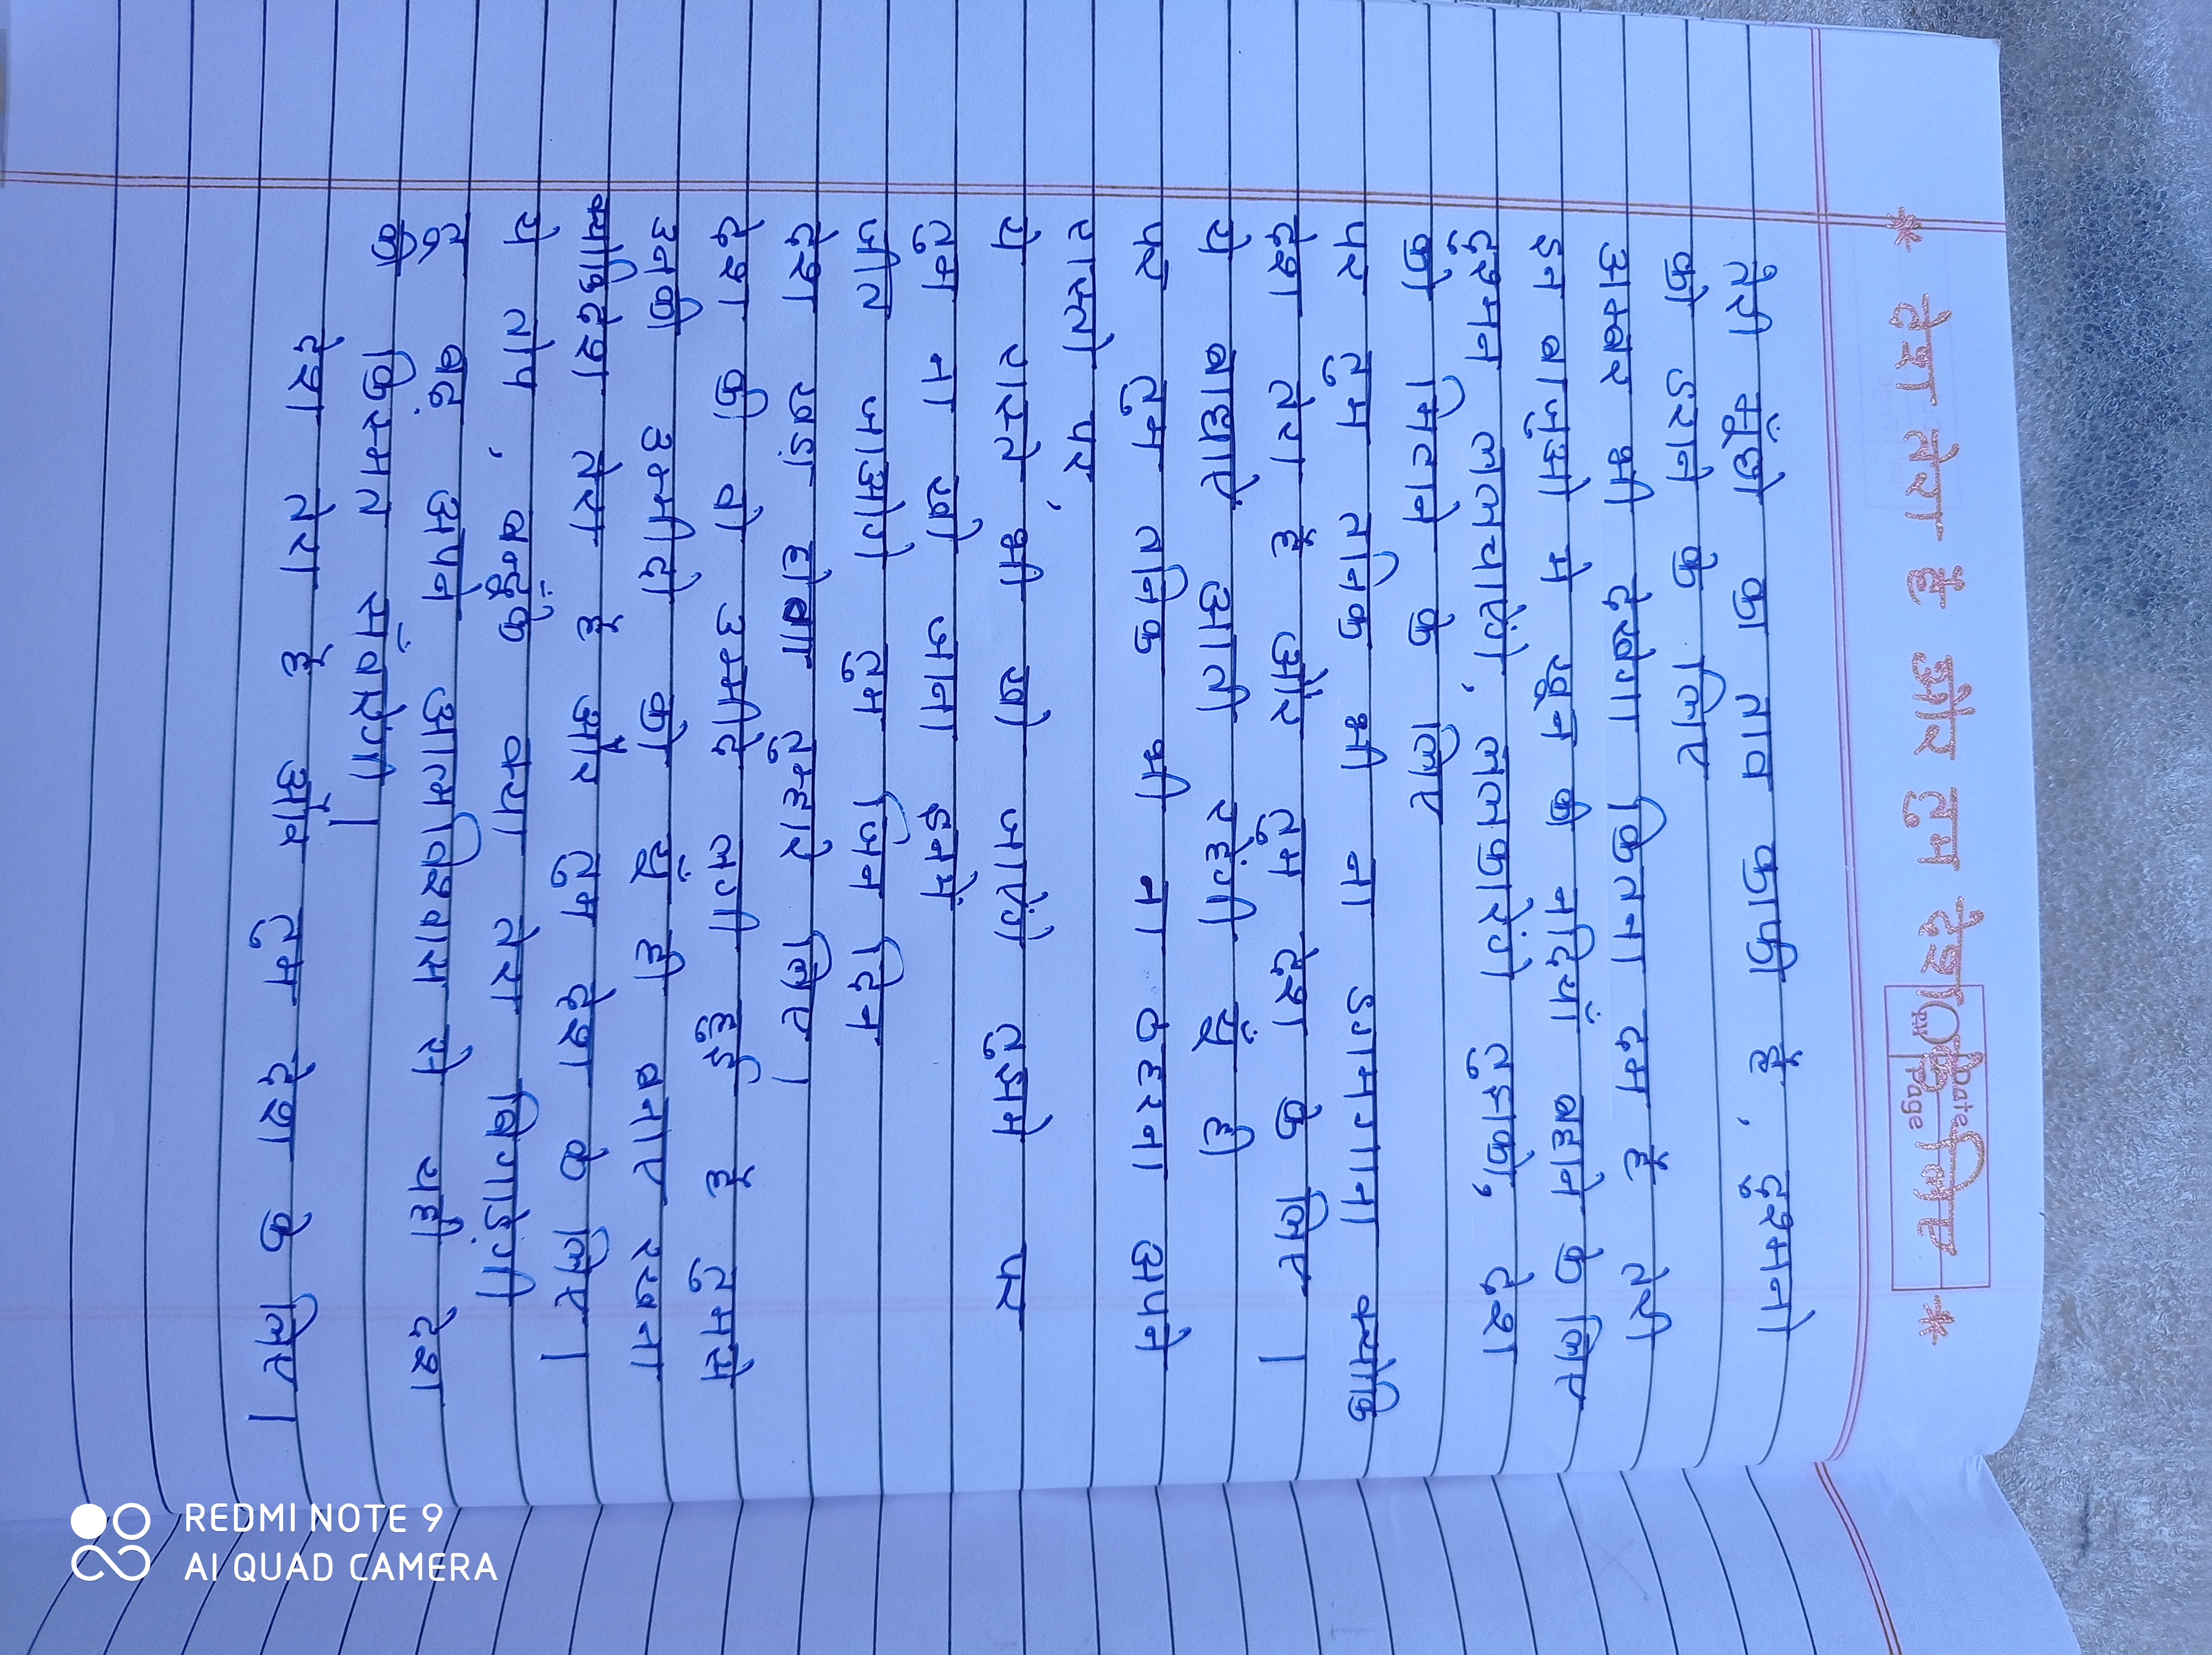 * देश तेरा है और तुम देश के लिए *
Date
Page
तेरी मूँछो का ताव काफी हैं, दुश्मनो
को डराने के लिए
अम्बर भी देखेगा कितना दम हैं तेरी
इन बाजुओ मे खून की नदियाँ बहाने के लिए
दुश्मन ललचाएंगे, ललकारेंगे तुझको, देश
को मिटाने के लिए
पर तुम तनिक भी ना डगमगाना क्योकि
देश तेरा हैं और तुम देश के लिए।
ये बाधाऐं आती रहेंगी यूँ ही
पर तुम तनिक भी ना ठहरना अपने
रास्तो पर,
ये रास्ते भी खो जाएंगे तुझमे पर
तुम ना खो जाना इनमें
जीत जाओगे तुम जिन दिन
देश खड़ा होगा तुम्हारे लिए।
देश की वो उम्मीदे लगी हुई हैं तुमसे
उनकी उम्मीदो को यूँ ही बनाए रखना
क्योकि देश तेरा हैं और तुम देश के लिए।
ये तोप, बन्दूंके क्या तेरा बिगाड़ेंगी
तू बढ़ अपने आत्मविश्वास से यही देश
की किस्मत संवारेगी।
देश तेरा हैं और तुम देश के लिए।
REDMI NOTE 9
AI QUAD CAMERA